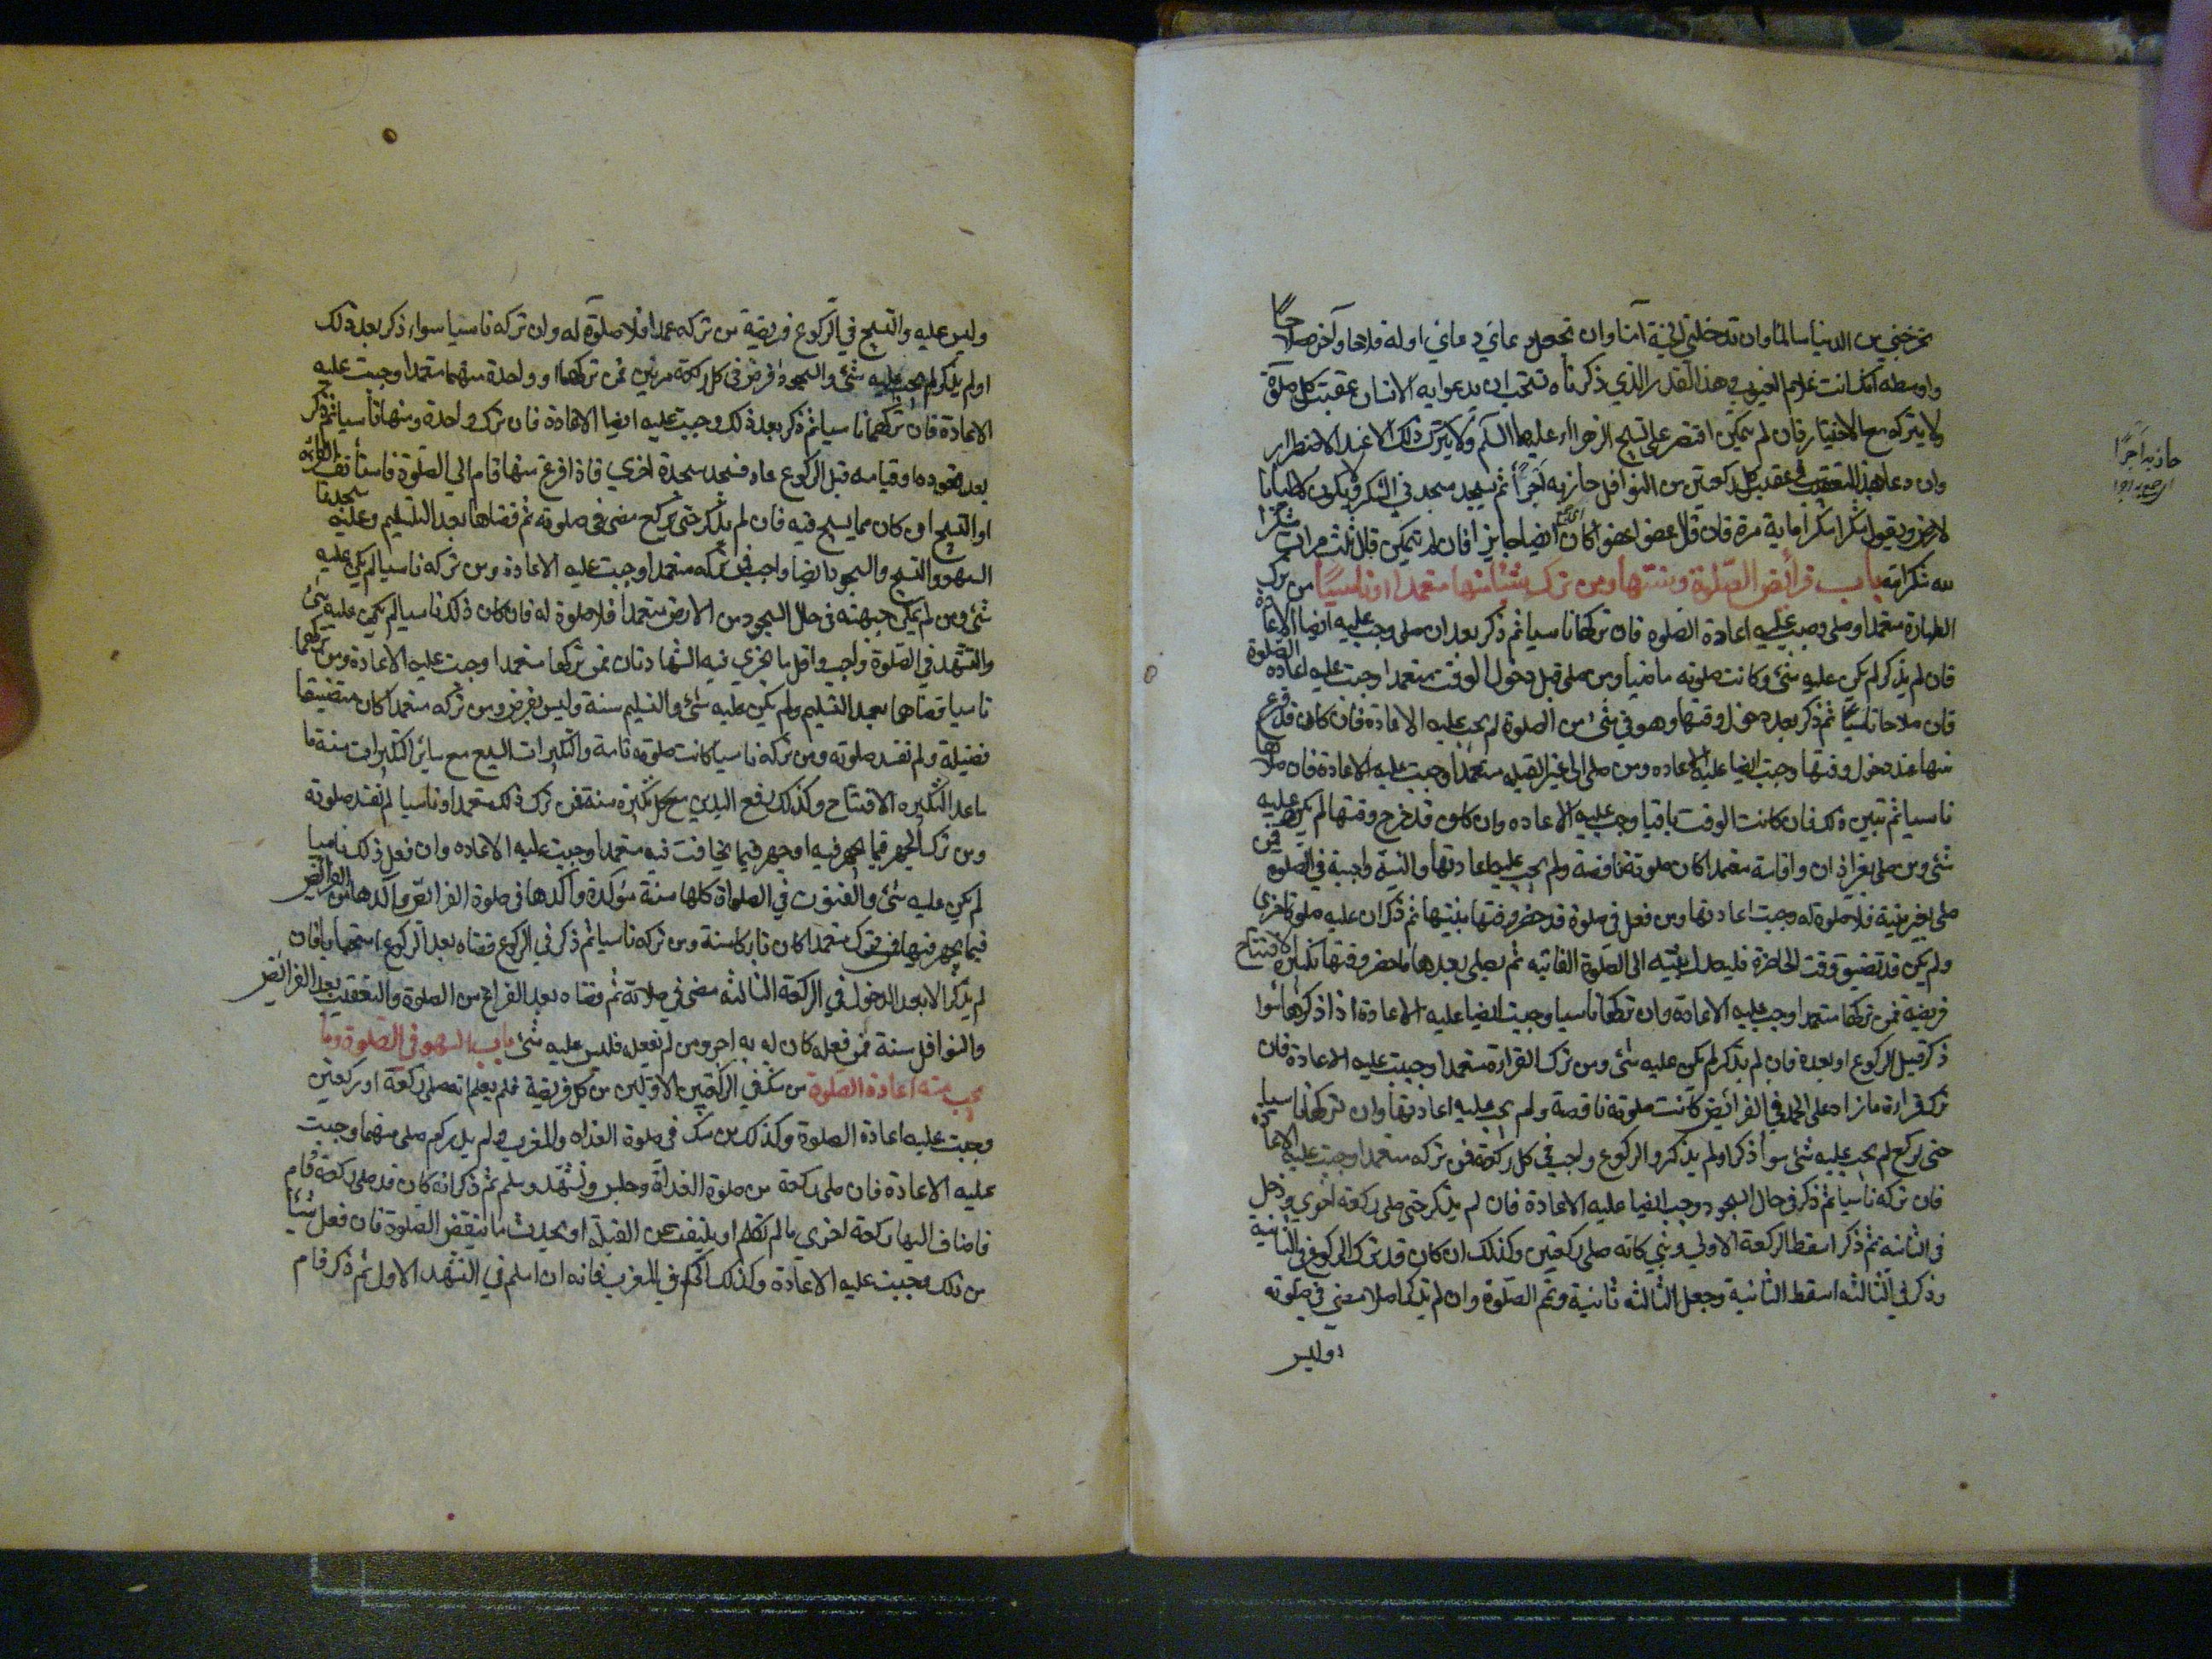 تخرجني من الدنيا سالما وان تدخلني الجنة آمنا وان تجعل دعائي اوله فلاحا وآخره صلاحا
واوسطه انك انت علام الغيوب وهذا القدر الذي ذكرناه تستحب ان يدعوا به الانسان عقيب كل صلوة
ولا يتركه مع الاختيار فان لم يتمكن اقتصر على تسبيح الزهراء عليها السلم ولا يترك ذلك الا عند الاضطرار
وان دعا بهذا التعقيب في عقيب كل ركعتين من النوافل حاز به اجرا ثم يسجد سجدتي الشكر ويكون لاطيا
لارض ويقول شكرا شكرا ماية مرة فان قال عفوا عفوا كان ايضا جايزا فان لم يتمكن قال ثلث مرات شكرا
لله شكرا لله باب فرائض الصلوة وسننها ومن ترك شئا منها متعمدا او ناسيا من ترك
الطهارة متعمدا وصلى وجب عليه اعادة الصلوة فان تركها ناسيا ثم ذكر بعد ان صلى وجب عليه ايضا الاعادة
فان لم يذكر لم يكن عليه شئ وكانت صلوته ماضيا ومن صلى قبل دخول الوقت متعمدا وجبت عليه اعادة الصلوة
فان صلاها ناسيا ثم ذكر بعد دخول وقتها وهو في شئ من الصلوة لم يجب عليه الاعادة فان كان قد فرغ
منها عند دخول وقتها وجبت ايضا عليه الاعاده ومن صلى الى غير القبله متعمدا وجبت عليه الاعادة فان صلاها
ناسيا ثم تبين ذلك فان كانت الوقت باقيا وجب عليه الاعاده وان كان قد خرج وقتها لم يكن عليه
شئ ومن صلى بغير اذان واقامة متعمدا كان صلوته ناقصة ولم يجب عليه اعادتها والنية واجبة في الصلوة فمن
صلى بغير نية فلا صلوة له وجبت اعادتها ومن فعل في صلوة قد حضر وقتها بنيتها ثم ذكر ان عليه صلوة اخرى
ولم يكن قد تضيق وقت الحاضرة فليعدل بنيته الى الصلوة الفائتيه ثم يصلي بعدها ما حضر وقتها تكبيرة الافتتاح
فريضة فمن تركها متعمدا وجب عليه الاعادة وان تركها ناسيا وجبت ايضا عليه الاعادة اذا ذكرها سوا
ذكر قبل الركوع او بعده فان لم يذكر لم يكن عليه شئ ومن ترك القراءة متعمدا وجبت عليه الاعادة فان
ترك قراءة ما زاد على الحمد في الفرائض كانت صلوته ناقصة ولم يجب عليه اعادتها وان تركها ناسيا
حتى يركع لم يجب عليه شئ سوا ذكر او لم يذكر والركوع واجب في كل ركعة فمن تركه متعمدا وجبت عليه الاعادة
فان تركه ناسيا ثم ذكر في حال السجود وجب ايضا عليه الاعادة فان لم يذكر حتى صلى ركعة اخري ودخل
في الثانيه ثم ذكر اسقط الركعة الاولي وبني كانه صلى ركعتين وكذلك ان كان قد ترك الركوع في الثانية
وذكر في الثالثه اسقط الثانية وجعل الثالثه ثانية وتم الصلوة وان لم يذكر اصلا مضى في صلوته
وليس
حاز به اجرا
وليس عليه والتسبيح في الركوع فريضة من تركه عمدا فلا صلوة له وان تركه ناسيا سواء ذكر بعد ذلك
او لم يذكر لم يجب عليه شئ والسجود فرض في كل ركعة مرتين فمن تركهما او واحدة منهما متعمدا وجبت عليه
الاعادة فان تركهما ناسيا ثم ذكر بعد ذلك وجبت عليه ايضا الاعادة فان ترك واحدة ومنهما ناسيا ثم ذكر
بعد قعوده او قيامه قبل الركوع عاد فسجد سجدة اخري فاذا فرغ منها قام الي الصلوة فاستأنف القراءة
او التسبيح ان كان مما يسبح فيه فان لم يذكر حتى يركع مضى في صلوته ثم قضاها بعد التسليم وعليه سجدتا
السهو والتسبيح والسجود ايضا واجب فمن تركه متعمدا وجبت عليه الاعادة ومن تركه ناسيا لم يكن عليه
شئ ومن لم يمكن جبهته في حال السجود من الارض متعمدا فلا صلوة له فان كان ذلك ناسيا لم يكن عليه شئ
والتشهد في الصلوة واجب واقل ما يجزي فيه الشهادتان فمن تركها متعمدا وجبت عليه الاعادة ومن تركهما
ناسيا قضاهما بعد التسليم ولم يكن عليه شئ والتسليم سنة وليس بفرض ومن تركه متعمدا كان متضيعا
فضيلة ولم تفسد صلوته ومن تركه ناسيا كانت صلوته تامة والتكبيرات السبع مع سائر التكبيرات سنة ما
ما عدا التكبيره الافتتاح وكذلك رفع اليدين مع كل تكبيرة سنة فمن ترك ذلك متعمدا او ناسيا لم تفسد صلوته
ومن ترك الجهر فيما يجهر فيه او جهر فيما يخافت فيه متعمدا وجبت عليه الاعاده وان فعل ذلك ناسيا
لم يكن عليه شئ والقنوت في الصلواة كلها سنة مؤكدة وآكدها في صلوة الفرائض وآكدها من الفرائض
فيما يجهر فيها فمن ترك متعمدا كان تاركا سنة ومن تركه ناسيا ثم ذكر في الركوع قضاه بعد الركوع استحبابا فان
لم يذكر الا بعد الدخول في الركعة الثالثه مضى في صلاته ثم قضاه بعد الفراغ من الصلوة والتعقيب بعد الفرائض
والنوافل سنة فمن فعله كان له به اجر ومن لم يفعله فليس عليه شئ باب السهو في الصلوة وما
يجب منه اعادة الصلوة من شك في الركعتين الاوليين من كل فريضة فلم يعلم انه صلى ركعة او ركعتين
وجبت عليه اعادة الصلوة وكذلك من شك في صلوة الغداه والمغرب ولم يدر كم صلى منهما وجبت
عليه الاعادة فان صلى ركعة من صلوة الغداة وجلس وتشهد وسلم ثم ذكر انه كان قد صلى ركعة قام
فاضاف اليها ركعة اخري ما لم يتكلم او يلتفت عن القبلة او يحدث ما ينقض الصلوة فان فعل شيئا
من ذلك وجبت عليه الاعادة وكذلك الحكم في المغرب فانه ان سلم في التشهد الاول ثم ذكر قام